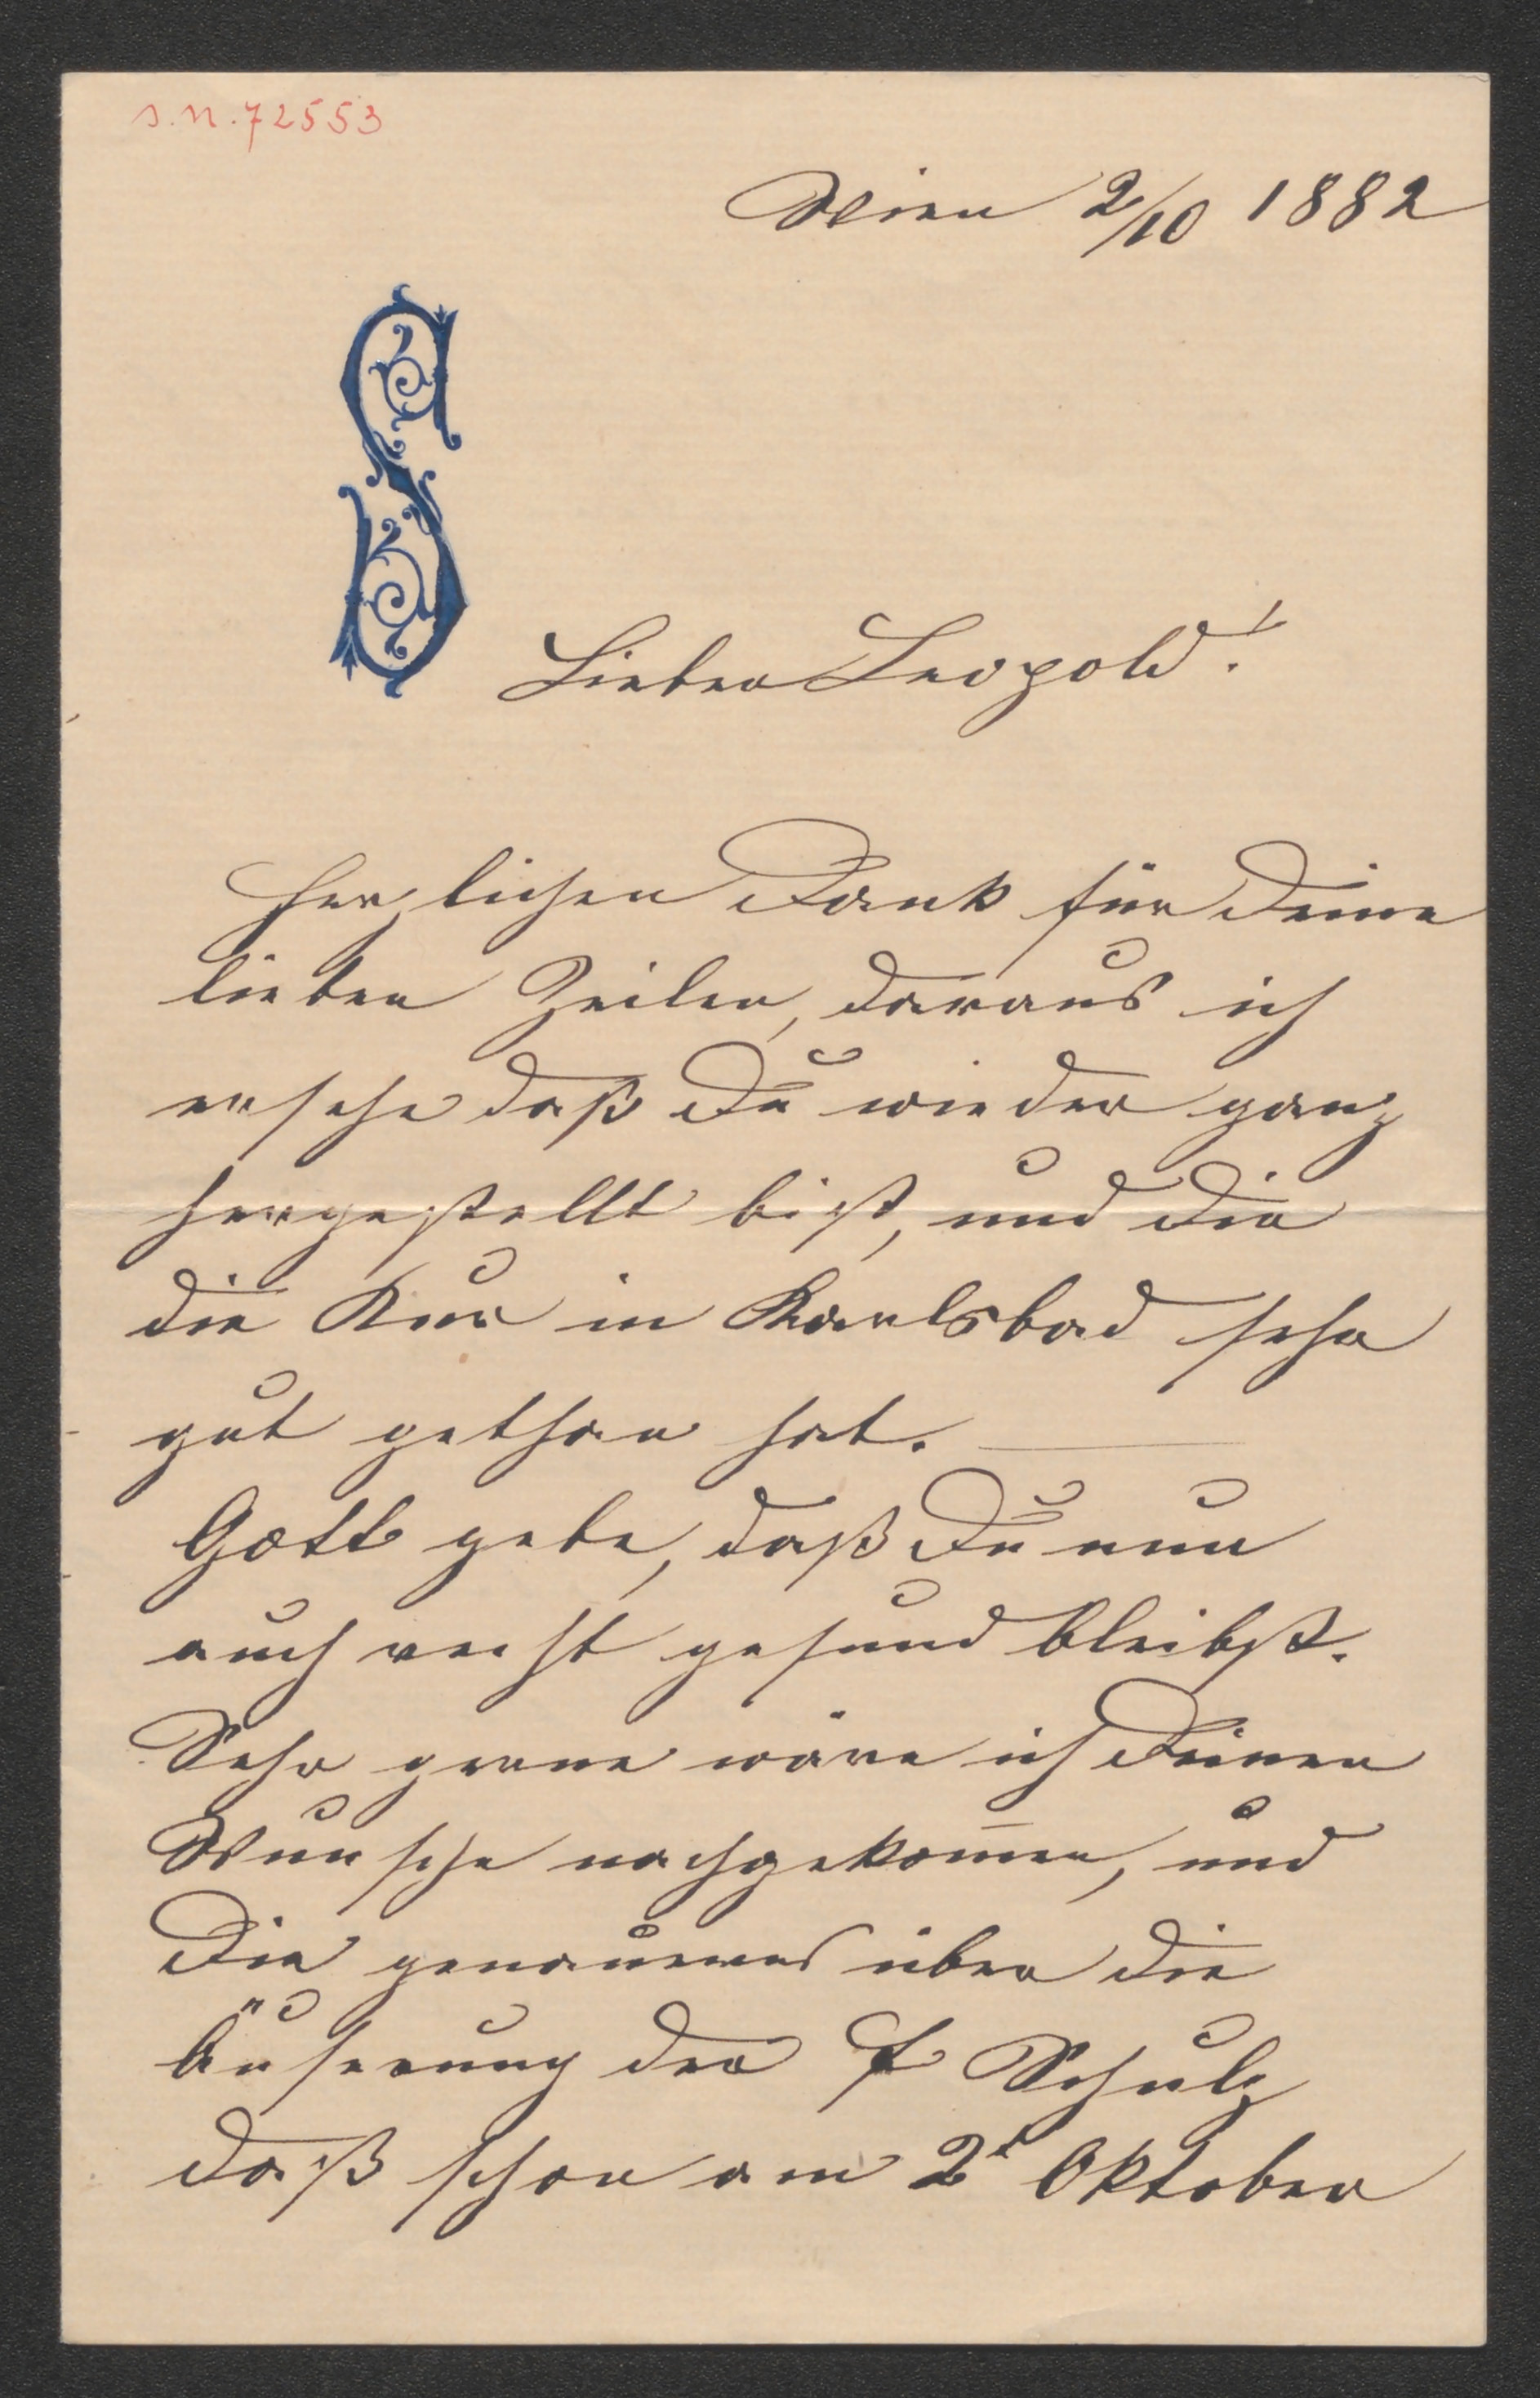 s.n. 72553
Wien 2/10 1882
S
Lieber Leopold!
Herzlichen Dank für Deine
lieben Zeilen, daraus ich
ersehe daß Du wieder ganz
hergestellt bist, und Dir
die Kur in Karlsbad sehr
gut gethan hat. —
Gott gebe, daß Du nun
auch recht gesund bleibst.
Sehr gerne wäre ich Deinem
Wunsche nachgekom̅en, und
Dir genaueres über die
Äußerung der F Schulz
daß schon am 2t Oktober